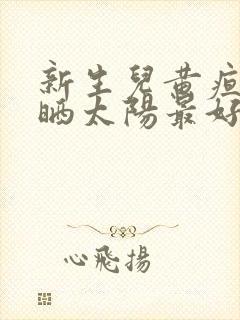 新生兒黃疸
晒太陽最好
心飛揚